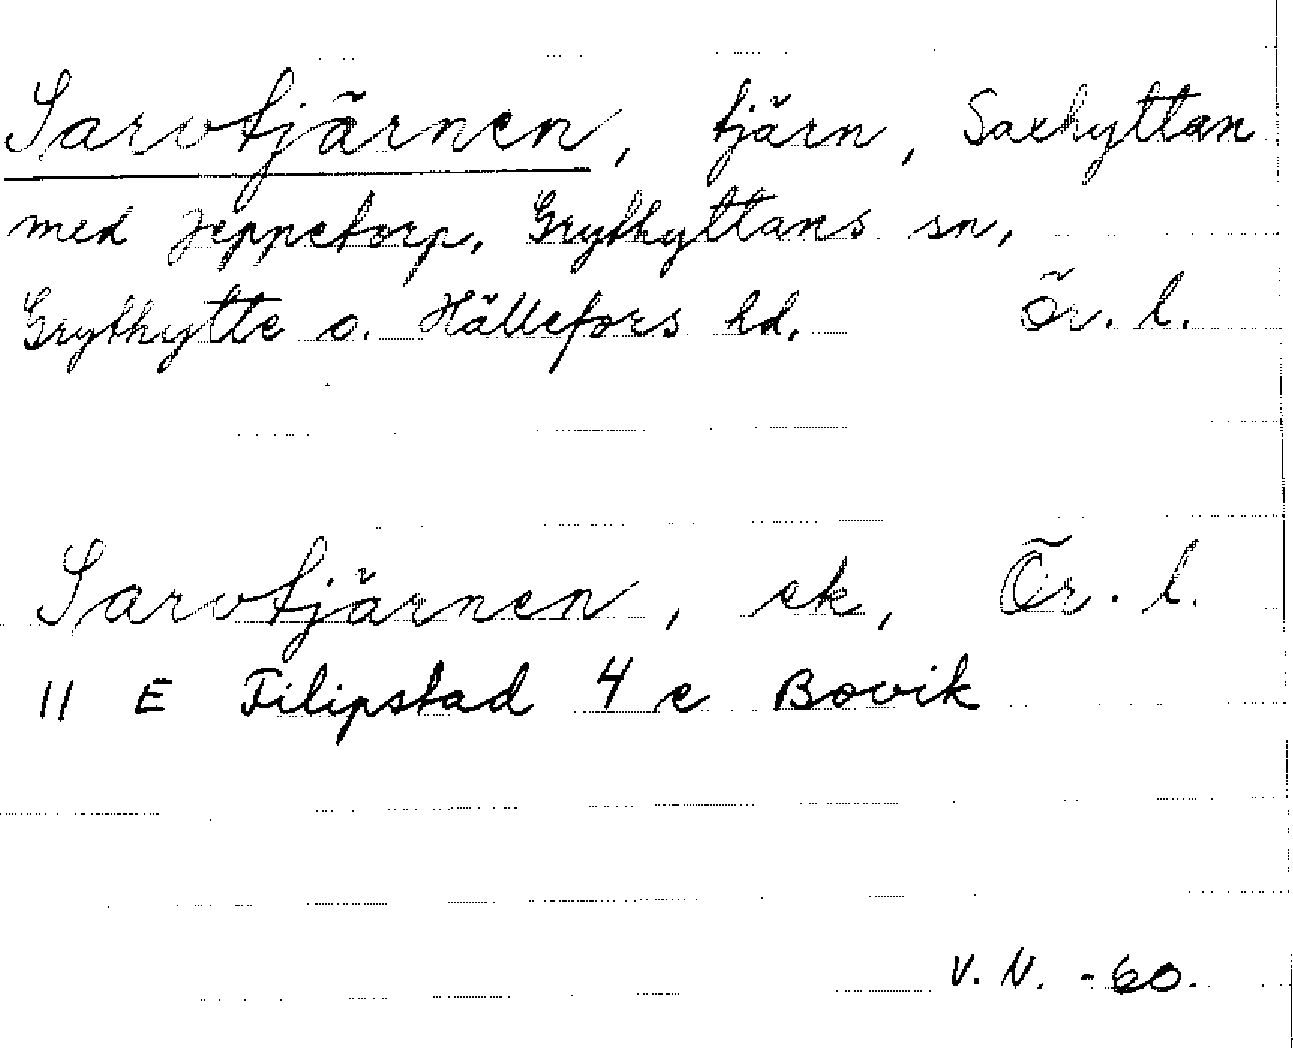 Sarvtjärnen, tjärn, Saxhyttan
med Jeppetorp, Grythyttans sn,
Grythytte o. Hällefors hd. Ör. l.
Sarvtjärnen, ek, Ör. l.
11 E Filipstad 4 e Bovik
V. N. -60.